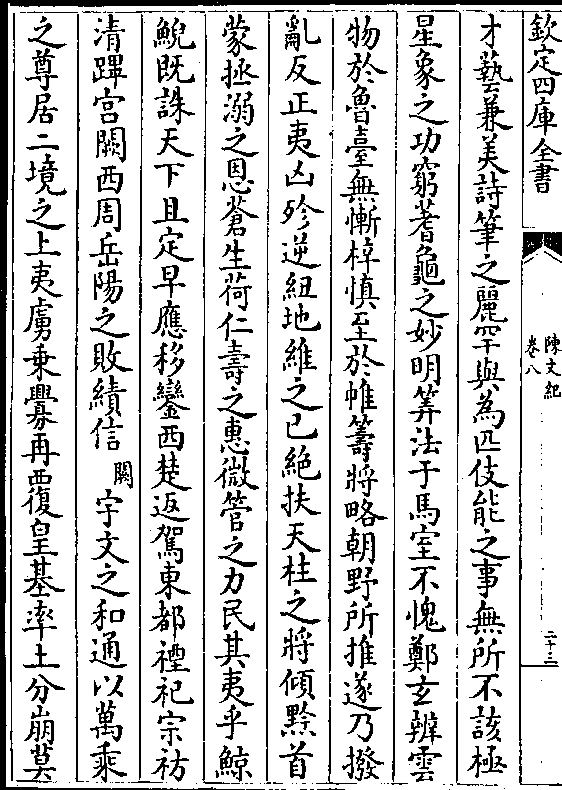 欽定四庫全書
陳文紀
卷八
二十三
才藝兼美詩筆之麗罕與為匹伎能之事無所不該極
星象之功窮蓍龜之妙明筭法于馬室不愧鄭玄辨雲
物於魯臺無慚梓慎至於帷籌將略朝野所推遂乃撥
亂反正夷凶殄逆紐地維之已絕扶天柱之將傾黔首
蒙拯溺之恩蒼生荷仁壽之惠微管之力民其夷乎鯨
鯢既誅天下且定早應移鑾西楚返駕東都禋祀宗祊
清蹕宫闕西周岳陽之敗績信闕宇文之和通以萬乘
之尊居二境之上夷虜乘釁再覆皇基率土分崩莫